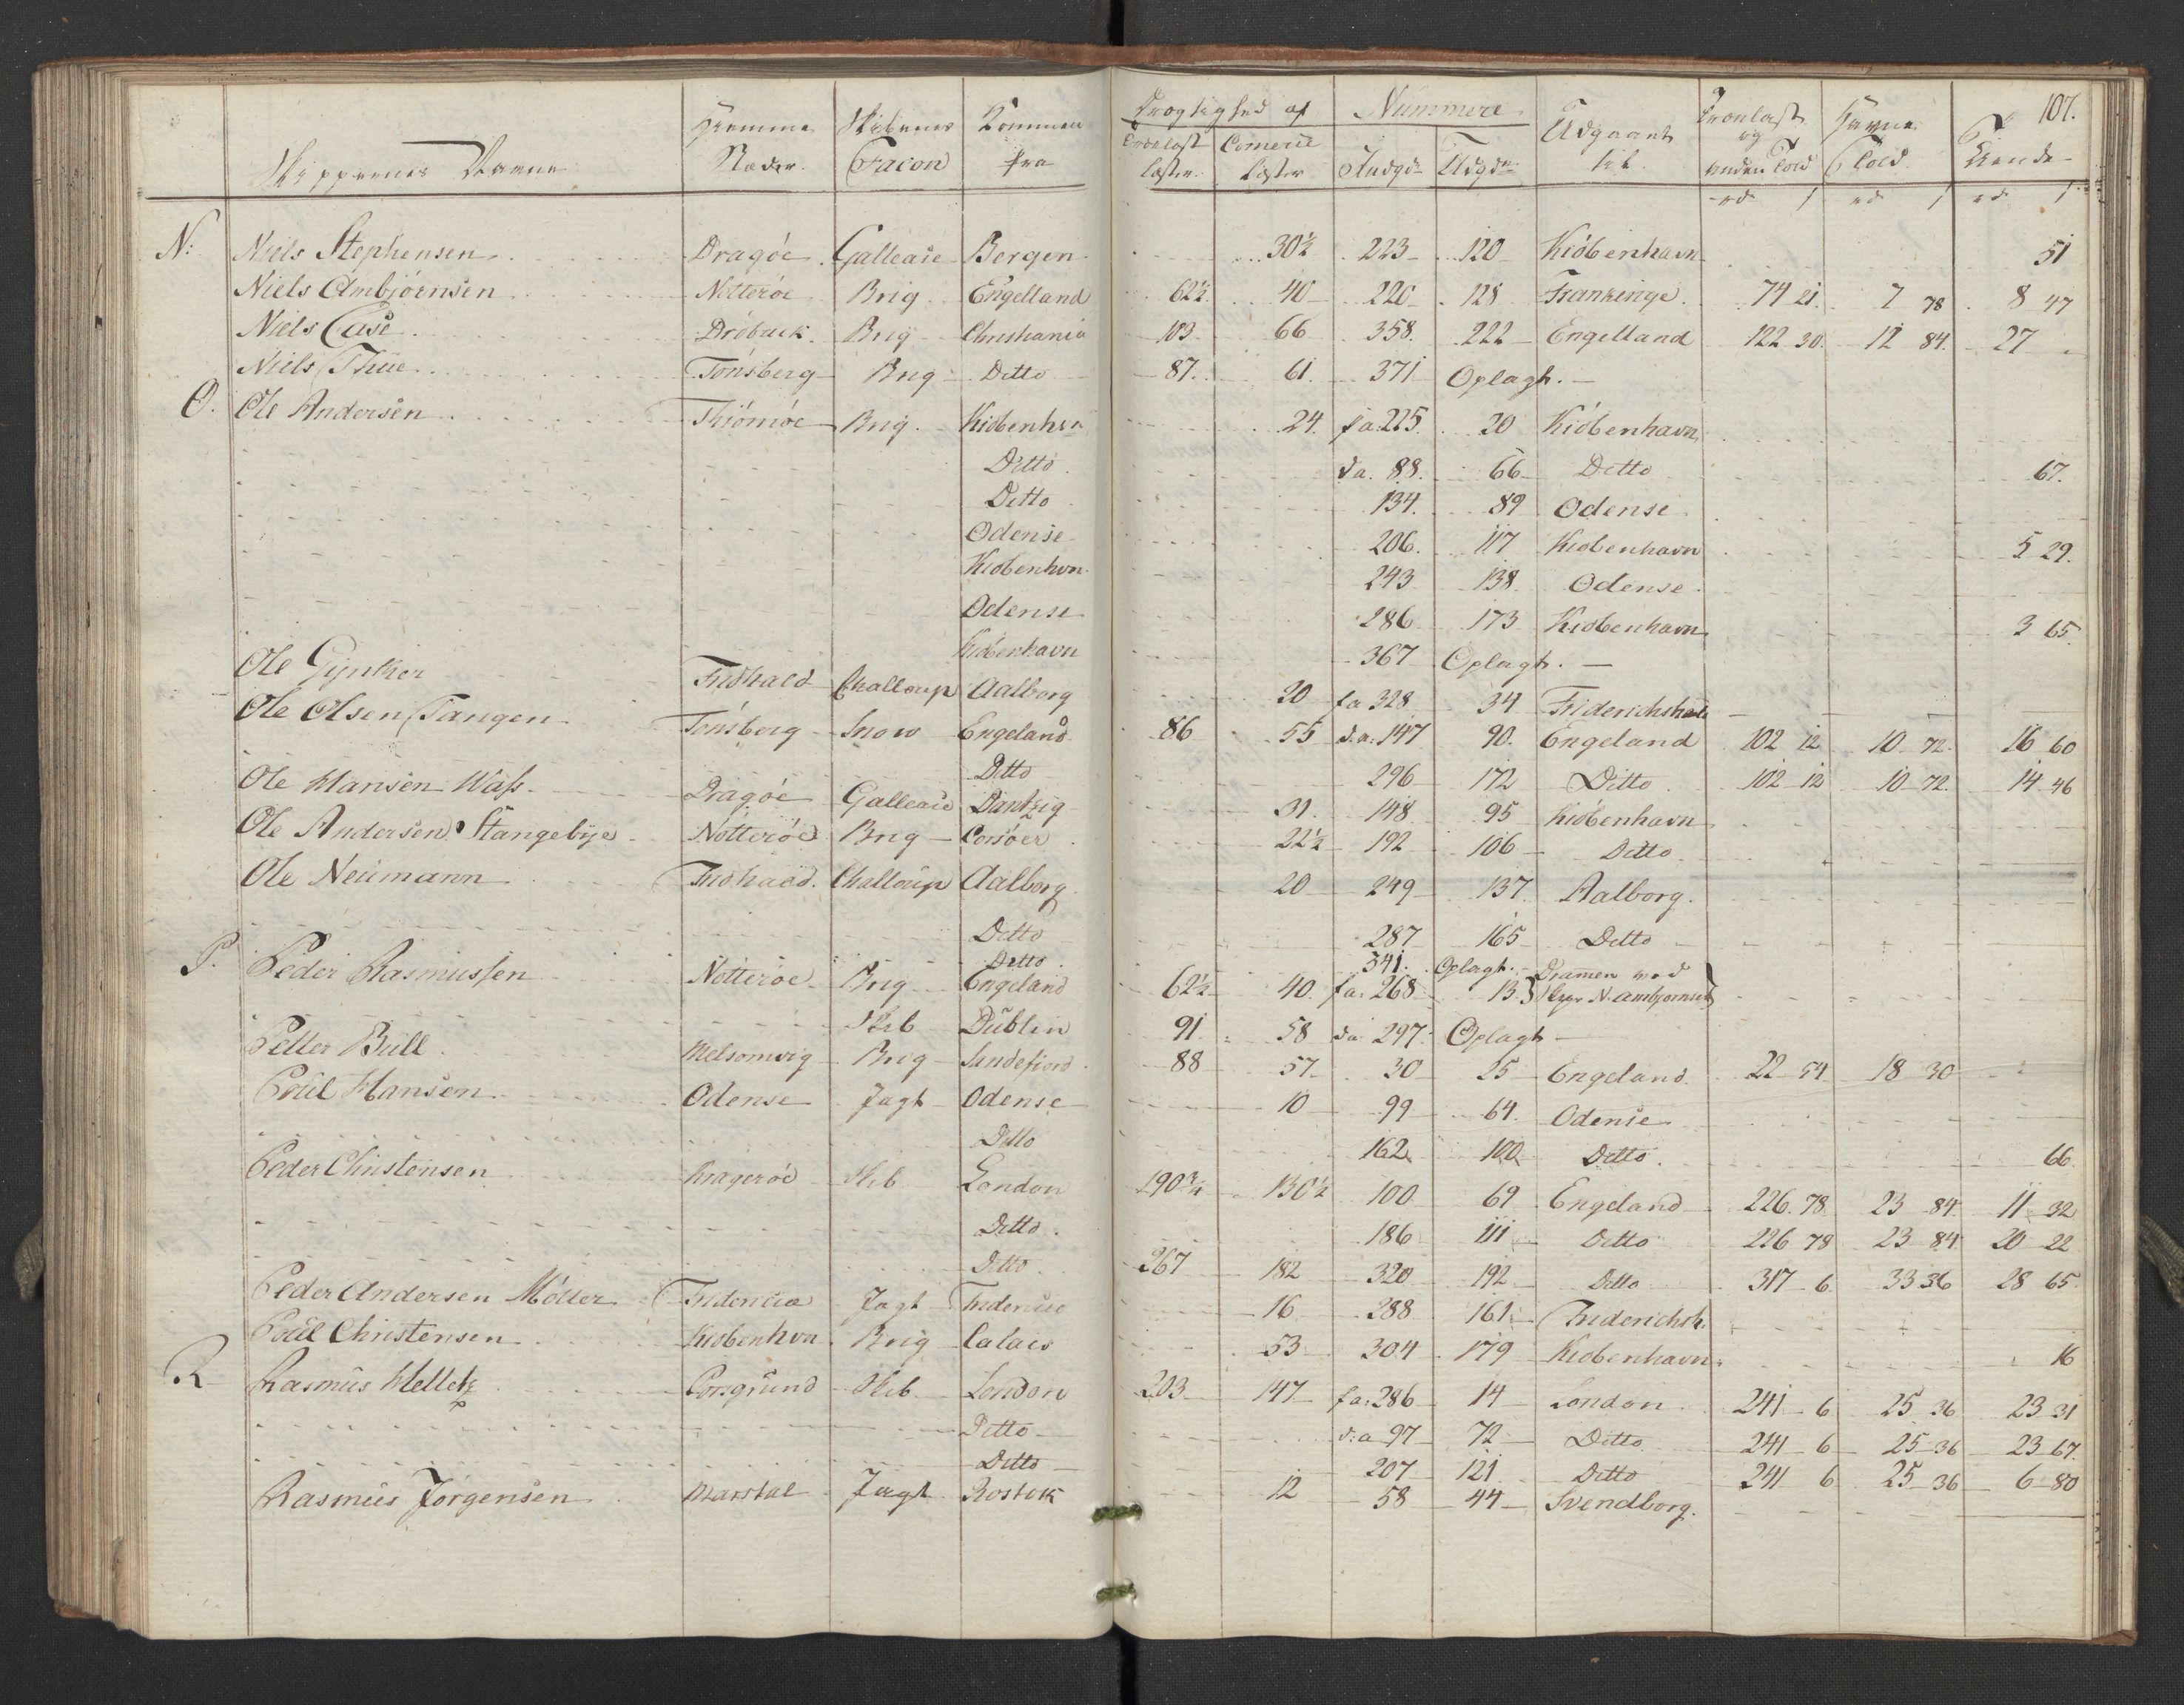 107.
Skippernes Navne | Hjemme Stæder. | Skibenes Facon | Kommen fra | Drægtighed af Trælast Læster. | Comerce Læster | Nummere Indgde | Udgde | Udgaaet til | Trælast og anden Told | Havne Told. | rd | rd | rd
N: Niels Stephensen | Dragöe | Galleaie | Bergen | 30½ | 223 | 120 | Kiöbenhavn | 51
Niels Ambjörnsen | Nötteröe | Brig | Engelland | 62½ | 40 | 220 | 128 | Frankrige | 74 21. | 7 78 | 8 47
Niels Case | Dröback | Brig | Christiania | 103 | 66 | 358. | 222 | Engelland | 122 30. | 12 84. | 27
Niels Thue | Tönsberg | Brig | Ditto | 87. | 61. | 371 | Oplagt.
O. Ole Andersen | Thiömöe | Brig | Kiöbenhvn | 24. | fa: 225. | 20 | Kiöbenhavn
Ditto. | da. 88. | 66 | Ditto | 67.
Ditto | 134. | 89 | Odense
Odense | 206. | 117 | Kiobenhavn | 5 29.
Kiobenhvn. | 243 | 138 | Odense
Odense | 286 | 173 | Kiobenhavn | 3 65.
Kiöbenhavn | 367 | Oplagt.
Ole Gynther | Fridhald | Challoup | Aalborg | 20 | fa 328 | 34 | Friderichshald
Ole Olsen Tangen | Tönsberg | Snow | Engeland | 86 | 55 | d:a: 147 | 90. | Engeland | 102 12 | 10 72. | 16 60
Ditto | 296 | 172 | Ditto | 102 12 | 10 72. | 14 46
Ole Hansen Wass | Dragöe | Galleaie | Dantzig | 31. | 148 | 95 | Kiöbenhavn
Ole Andersen Stangebye | Nötteröe | Brig | Corsöer | 22½ | 192 | 106 | Ditto
Ole Neumann | Fridhald. | Challoup | Aalborg | 20 | 249 | 137. | Aalborg.
Ditto | 287 | 165 | Ditto
Ditto. | 341. | Oplagt.
P. Peder Rasmussen | Nötteröe | Brig | Engeland | 62½ | 40. | fa: 268 | 13. | Dramen ved Skpr N. Ambjornsen
Skib | Dublin | 91 | 58 | da 297. | Oplagt
Petter Bull | Melsomvig | Brig | Sandefiord | 88 | 57. | 30 | 25 | Engeland | 22 54 | 18 30
Poul Hansen | Odense | Jagt | Odense | 10 | 99 | 64. | Odense
Ditto | 162. | 100 | Ditto. | 66.
Peder Christensen | Kragerøe | Skib | London | 190¾ | 130½ | 100 | 69 | Engeland | 226. 78. | 23 84. | 11 32
Ditto. | 186 | 111 | Ditto | 226 78 | 23 84 | 20 22
Ditto | 267 | 182 | 320 | 192 | Ditto | 317 6. | 33 36 | 28 65.
Peder Andersen Möller | Fridericia | Jagt | Fridericia | 16 | 288 | 161. | Friderichsh.
Poul Christensen | Kiöbenhvn | Brig | Calais | 53 | 304 | 179 | Kiobenhavn | 16
R Rasmus Melletz | Porsgrund | Skib | London | 203 | 147 | fa: 286 | 14 | London | 241 6 | 25 36 | 23 31
Ditto | d:a 97 | 72 | Ditto | 241 6 | 25 36 | 23 67.
Ditto | 207 | 121 | Ditto | 241 6 | 25 36 | 6 80
Rasmus Jörgensen | Marstal | Jagt | Rostok | 12 | 58 | 44 | Svendborg.